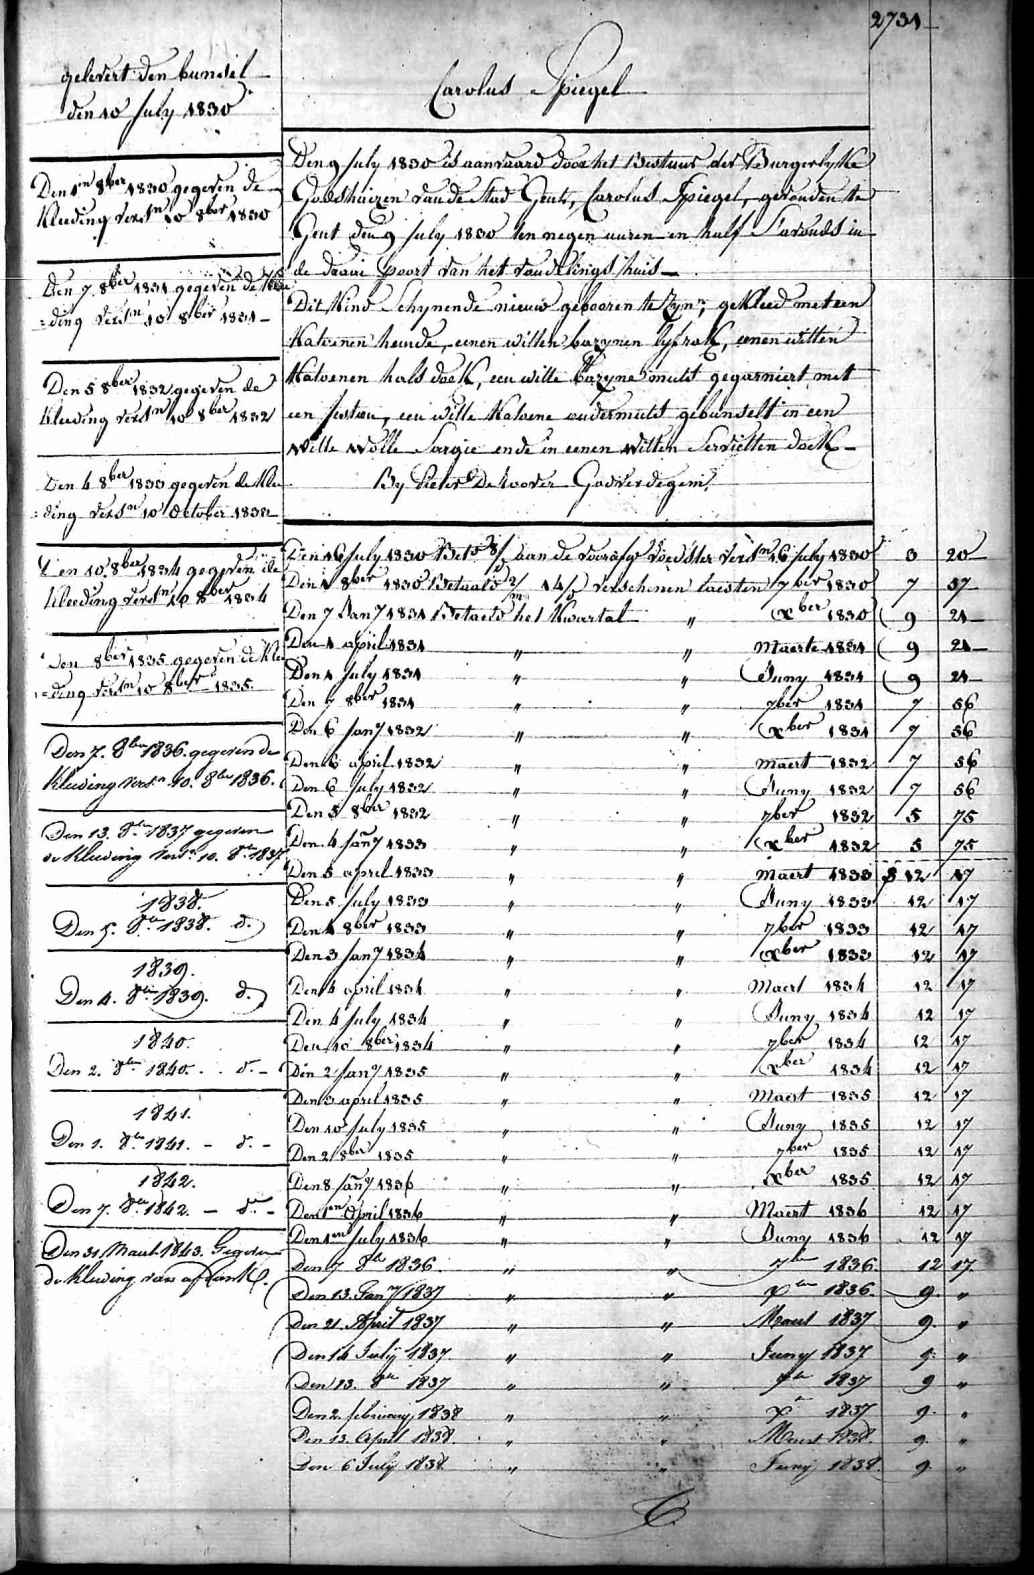 2731
gelevert den bundsel
den 10 July 1830
Carolus Spiegel
Den 9 July 1830 is aanvaard door het Bestuur der Burgerlyke
Godshuizen van de Stad Gent, Carolus Spiegel, gevonden te
Gent den 9 July 1830 ten negen uuren en half S'avonds in
de draaie Poort van het vondelings huis
Dit Kind Schynende nieuw gebooren te Zyn; gekleed met een
Katoenen hemde, eenen witten bazynen lyfrok, eenen witten
Katoenen hals doek, een witte bazyne muts gegarniert met
een feston, een witte Katoene ondermuts gebunselt in een
Witte Wolle Sargie ende in eenen Witten Servietten doek
By Pieter De Roover Godverdegem.
Den 1n 8ber 1830 gegeven de
Kleeding versn 10 8ber 1830
Den 7 8ber 1831 gegeven de Klee
=ding versn 10 8ber 1831
Den 5 8ber 1832 gegeven de
Kleeding versn 10 8ber 1832
Den 4 8ber 1833 gegeven de Klee
=ding versn 10 October 1833
Den 10 8ber 1834 gegeven de
Kleeding versn 10 8ber 1834
Den 8ber 1835 gegeven de Klee
=ding versn 10 8ber 1835.
Den 7. 8ber 1836. gegeven de
Kleeding versn 10. 8ber 1836.
Den 13. 8ber 1837 gegeven
de Kleeding versn 10. 8ber 1837
1838.
Den 5. 8ber 1838. d.
1839.
Den 4. 8ber 1839. d.
1840.
Den 2. 8ber 1840. d. -
1841.
Den 1. 8ber 1841. - d. -
1842.
Den 7. 8ber 1842. - do -
Den 31 Maert 1843. Gegeven
de Kleeding van
Den 16 July 1830 aan de Voedster versn 16 July 1830 3 20
Den 1 8ber 1830 Betaald 2/m 14/d verschenen laesten 7ber 1830 7 57
Den 7 Jany 1831 Betaeld het Kwartal " xber 1830 9 21
Den 1 april 1831 " " Maerte 1831 9 21
Den 1 July 1831 " " Juny 1831 9 21
Den 7 8ber 1831 " " 7ber 1831 7 56
Den 6 Jany 1832 " " xber 1831 7 56
Den 6 april 1832 " " maert 1832 7 56
Den 6 July 1832 " " Juny 1832 7 56
Den 5 8ber 1832 " " 7ber 1832 5 75
Den 4 Jany 1833 " " xber 1832 5 75
Den 5 april 1833 " " maert 1833 12 17
Den 5 July 1833 " " Juny 1833 12 17
Den 4 8ber 1833 " " 7ber 1833 12 17
Den 3 Jany 1834 " " xber 1833 12 17
Den 4 april 1834 " " Maert 1834 12 17
Den 4 July 1834 " " Juny 1834 12 17
Den 10 8ber 1834 " " 7ber 1834 12 17
Den 2 Jany 1835 " " xber 1834 12 17
Den 3 april 1835 " " Maert 1835 12 17
Den 10 July 1835 " " Juny 1835 12 17
Den 2 8ber 1835 " " 7ber 1835 12 17
Den 8 Jany 1836 " " xber 1835 12 17
Den 1en April 1836 " " Maert 1836 12 17
Den 1en July 1836 " " Juny 1836 12 17
Den 7 8ber 1836. " " 7ber 1836. 12 17.
Den 13. Jany 1837 " " xber 1836. 9. "
Den 21. April 1837 " " Maert 1837 9. "
Den 14 July 1837. " " Juny 1837 9. "
Den 13. 8ber 1837 " " 7ber 1837 9 "
Den 2. february 1838 " " xr 1837 9. "
Den 13. April 1838. " " Maert 1838. 9. "
Den 6 July 1838. " " Juny 1838. 9 "